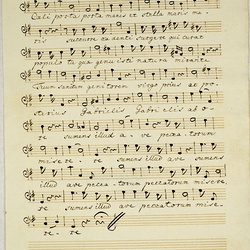 Caeli porta porta manes et stella maris ma-
ris succurre cadenti surgere qui curat
populo tu quae genuisti natura mirante
tuum sanctum genitorem virgo prius ac po-
sterius Gabrielis Gabrielis ab o-
re sumens illud ave peccatorum
miserere sumens illud ave sumens
illud ave peccatorum peccatorum misere-
re sumens illud ave peccatorum mise-
re-re